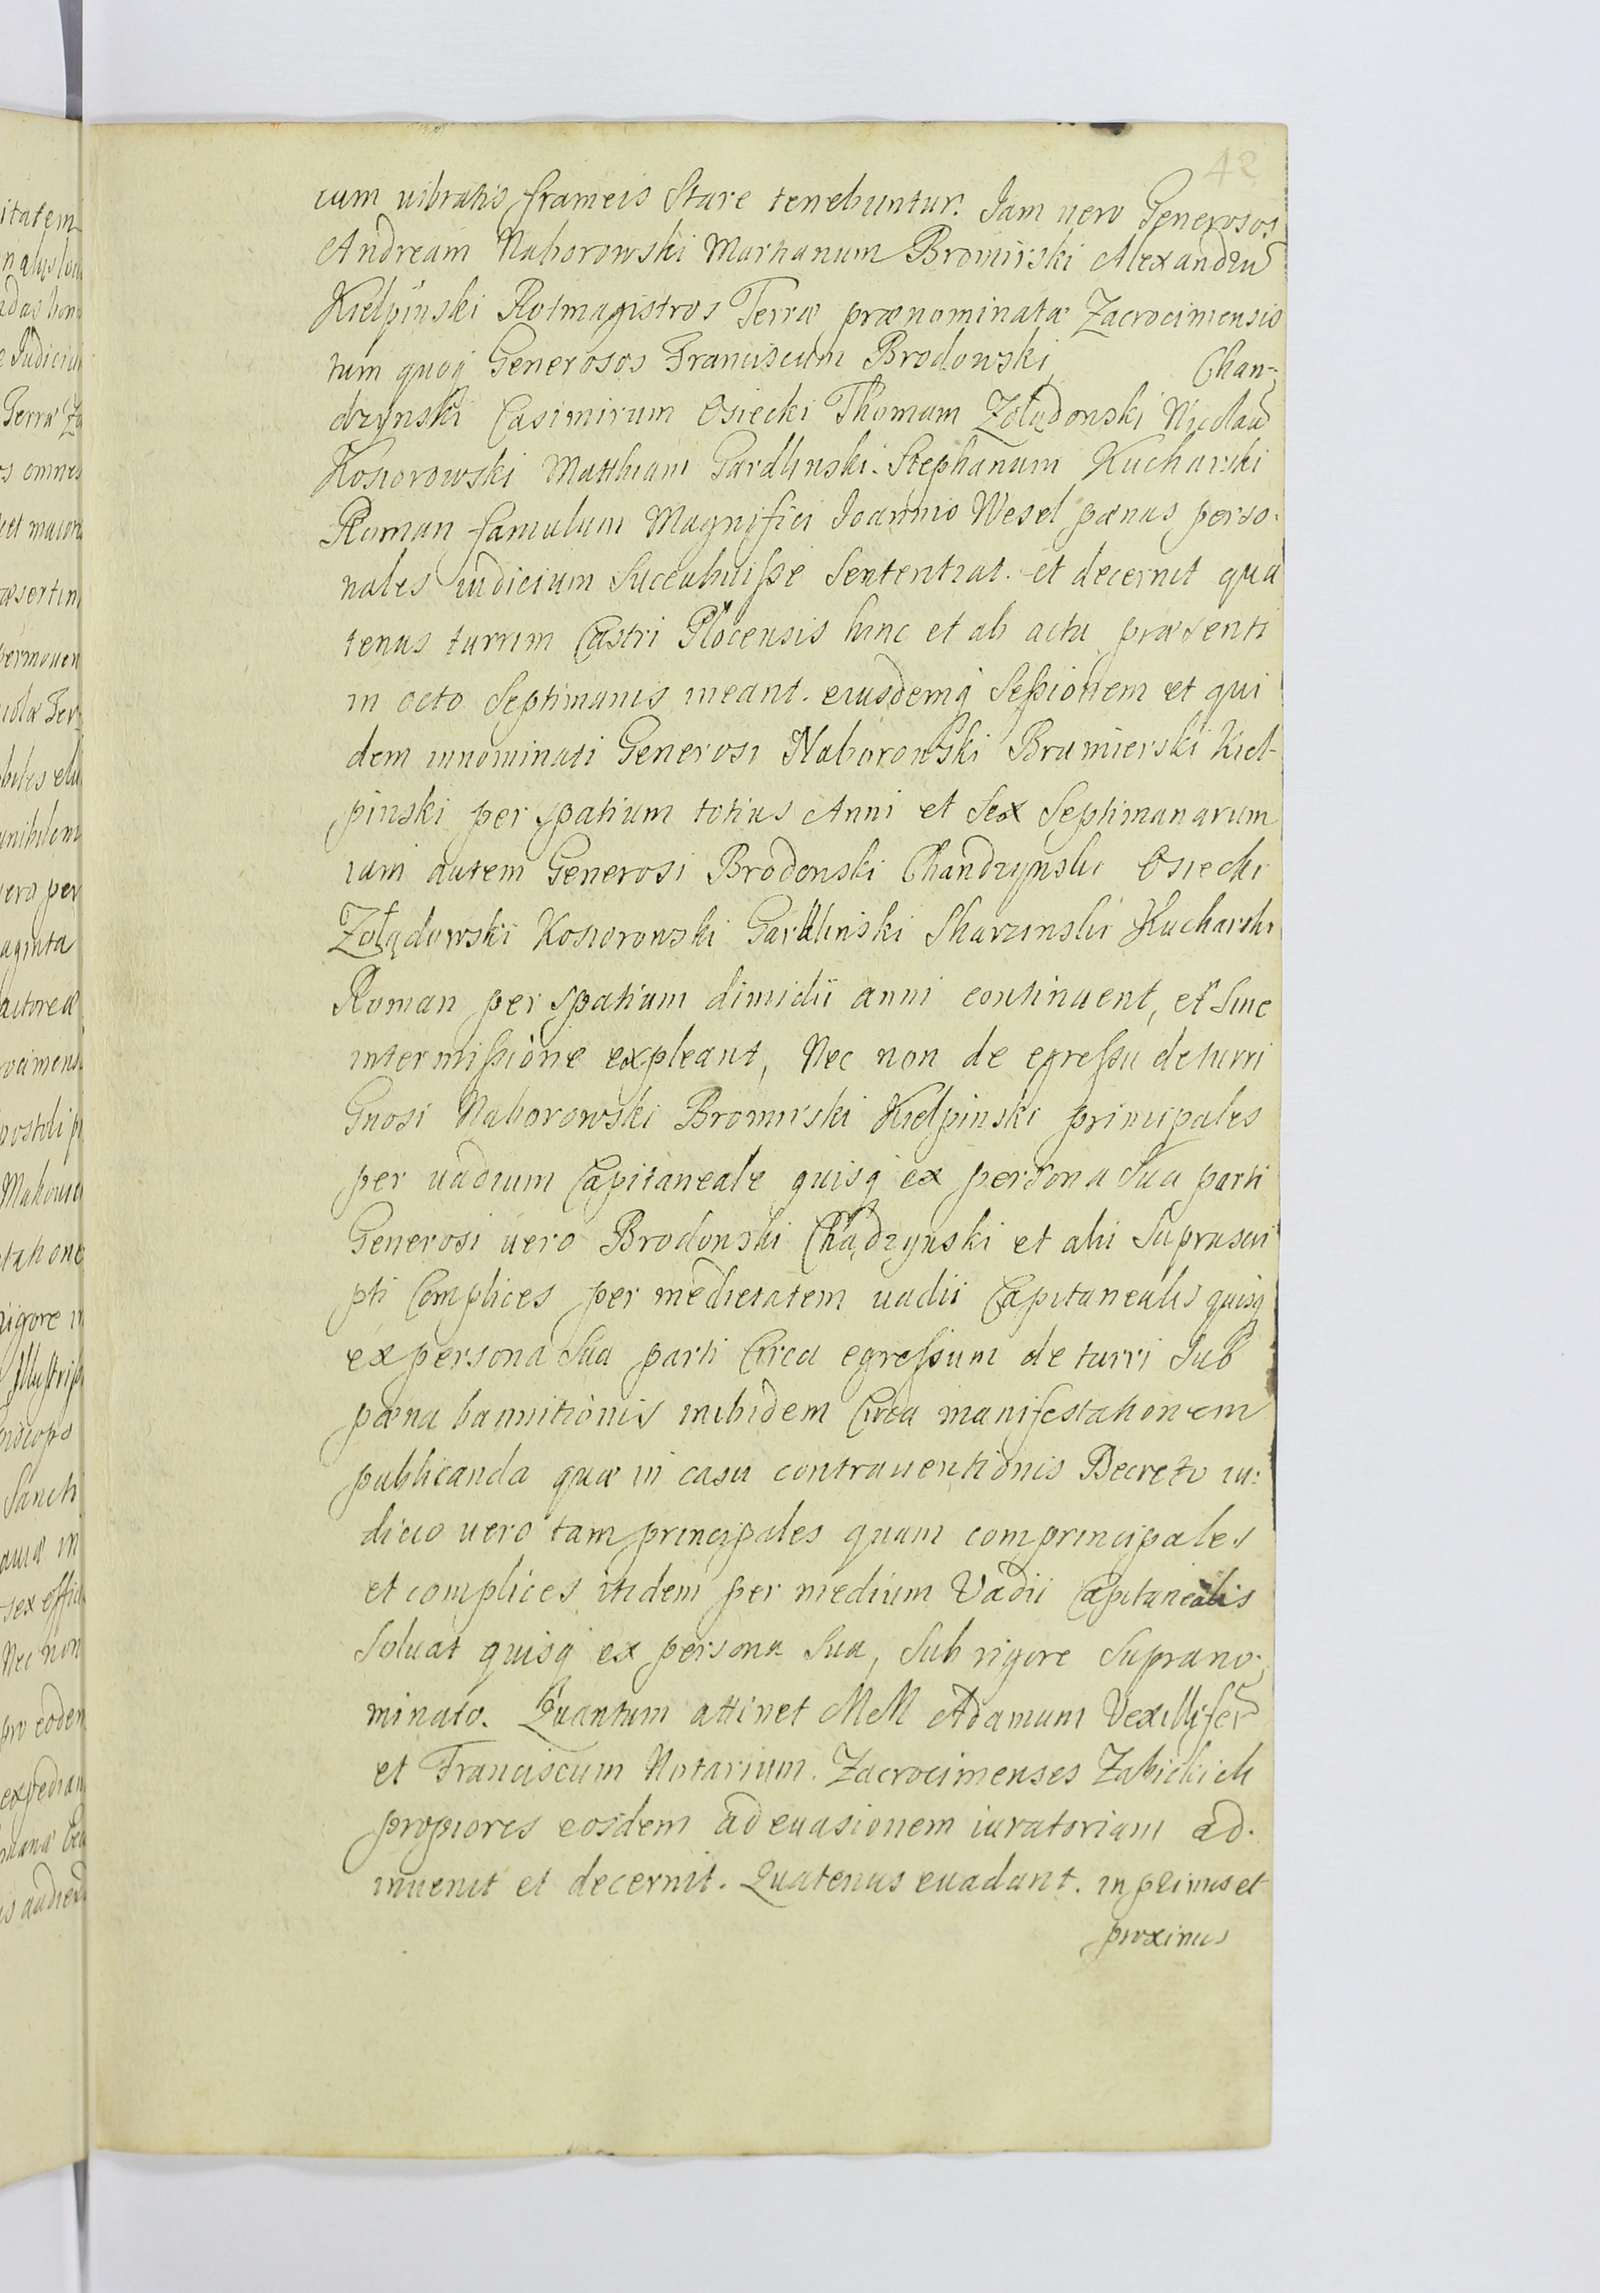 42
cum vibratis frameis Stare tenebuntur. Iam vero Generosos
Andream Naborowski Martianum Bromirski Alexandrũ
Kiełpinski Rotmagistros Terræ prænominatæ Zacrocimensis
tum quoq Generosos Franciscum Brodowski Chan-
drzynski Casimirum Osiecki Thomam Zołądowski Nicolaũ
Kosiorowski Matthiam Gardlinski. Stephanum Kucharski
Roman famulum Magnifici Joannis Wesel pænas perso-
nales iudicium Succubuisse Sententiat. et decernit qua
tenus turrim Castri Plocensis hinc et ab actu præsenti
in octo Septimanis ineant. eiusdemq Sessionem et qui
dem innominati Generosi Naborowski Bramierski Kieł-
pinski per spatium totius Anni et Sex Septimanarum
iam autem Generosi Brodowski Chandzynski Osiecki
Zołądowski Kosiorowski Gardlinski Skarzinski Kucharski
Roman per spatium dimidii anni continuent, et Sine
intermissione expleant, Nec non de egressu de turri
Gnosi Naborowski Bromirski Kiełpinski principales
per vadium Capitaneale quisq ex persona Sua parti
Generosi vero Brodowski Chądzynski et alii Suprascri
pti Complices per medietatem vadii Capitanealis quisq
ex persona Sua parti Circa egressum de turri Sub
pæna bannitionis inibidem Circa manifestationem
publicanda quæ in casu contraventionis Decreto iu-
dicio vero tam principales quam comprincipales
et complices itidem per medium Vadii Capitanealis
Soluat quisq ex persona Sua, Sub rigore Suprano-
minato. Quantum attinet MM Adamum Vexilliferũ
et Franciscum Notarium Zacrocimenses Zabickich
propiores eosdem ad evasionem iuratoriam ad-
invenit et decernit. Quatenus evadant. in primis et
proximis